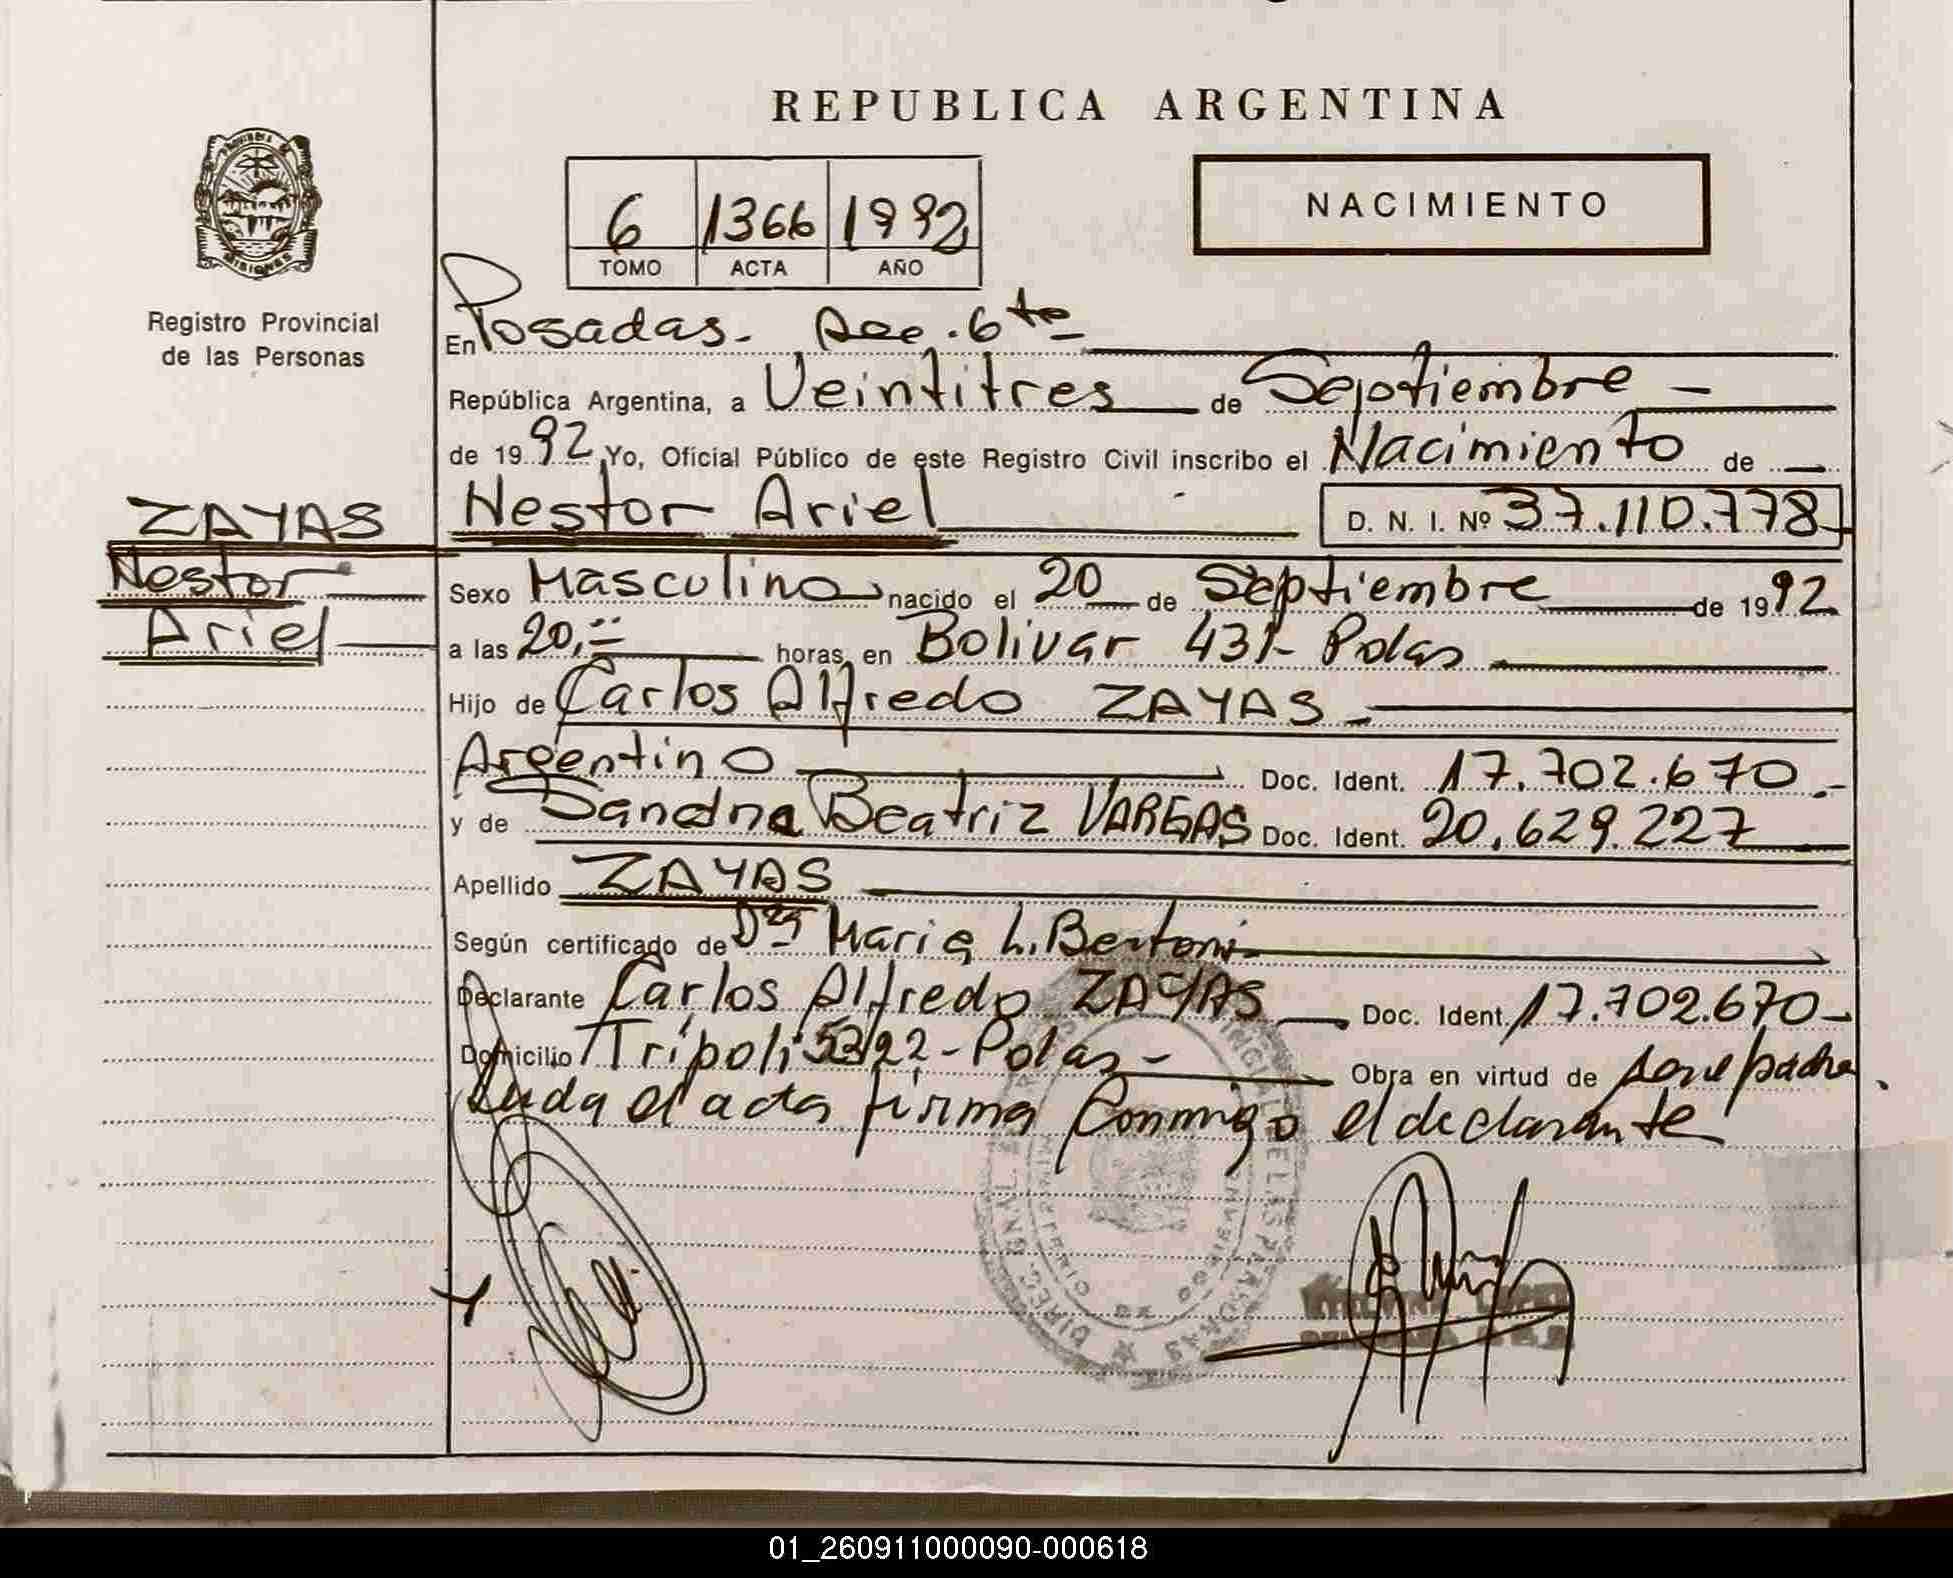 REPUBLICA ARGENTINA
PROVINCIA D
MISIONES
Registro Provincial
de las Personas
6 1366 1992
TOMO ACTA AÑO
NACIMIENTO
En Posadas - Sec. 6ta
República Argentina, a Veintitres de Septiembre
de 1992 Yo, Oficial Público de este Registro Civil inscribo el Nacimiento de
ZAYAS
Nestor
Ariel
Nestor Ariel D. N. I. Nº 37.110.778
Sexo Masculino nacido el 20 de Septiembre de 1992
a las 20,= horas, en Bolivar 431- Pdas
Hijo de Carlos Alfredo ZAYAS
Argentino Doc. Ident. 17.702.670.-
y de Sandra Beatriz VARGAS Doc. Ident. 20.629.227
Apellido ZAYAS
Según certificado de Dra Maria L. Bertoni
Declarante Carlos Alfredo ZAYAS Doc. Ident. 17.702.670-
Domicilio Tripoli 5322 - Pdas - Obra en virtud de ser el padre.
Leida el acta firma conmigo el declarante
MINISTERIO DE GOBIERNO
01_260911000090-000618